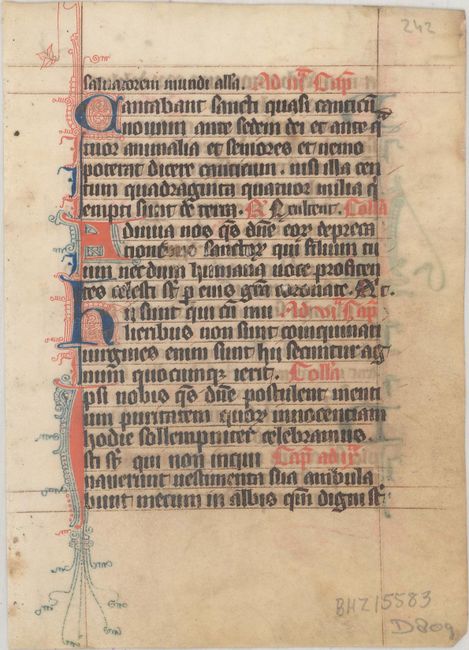 242
saluatorem mundi alla. Ad iii᷒ Cap̅
Cantabant sancti quasi canticū
nouum ante sedem dei et ante q̄
tuor animalia et seniores et nemo
poterat dicere canticum. nisi illa cen
tum quadraginta quatuor milia q̄
empti sunt de terra. R̷ Exultent. Colla
Adiuua nos q̄s dn̄e eoꝝ depreca
tione sanctoꝝ qui filium tu
um nec dum humana uoce profiten
tes celesti st̄ p eius gr̄a coronate. Per.
Ad vi᷒ Cap̅
hii sunt qui cū mu
lieribus non sunt coinquinati
uirgines enim sunt hii secuntur ag
num quocumqꝫ ierit. Colla
Ipsi nobis q̄s dn̄e postulent menti
um puritatem quoꝝ innocentiam
hodie sollempniter celebramus.
Isti st̄ qui non inqui Cap̅ ad ix᷒
nauerunt uestimenta sua ambula
bunt mecum in albis qm̄ digni st̄.
BHZ15583